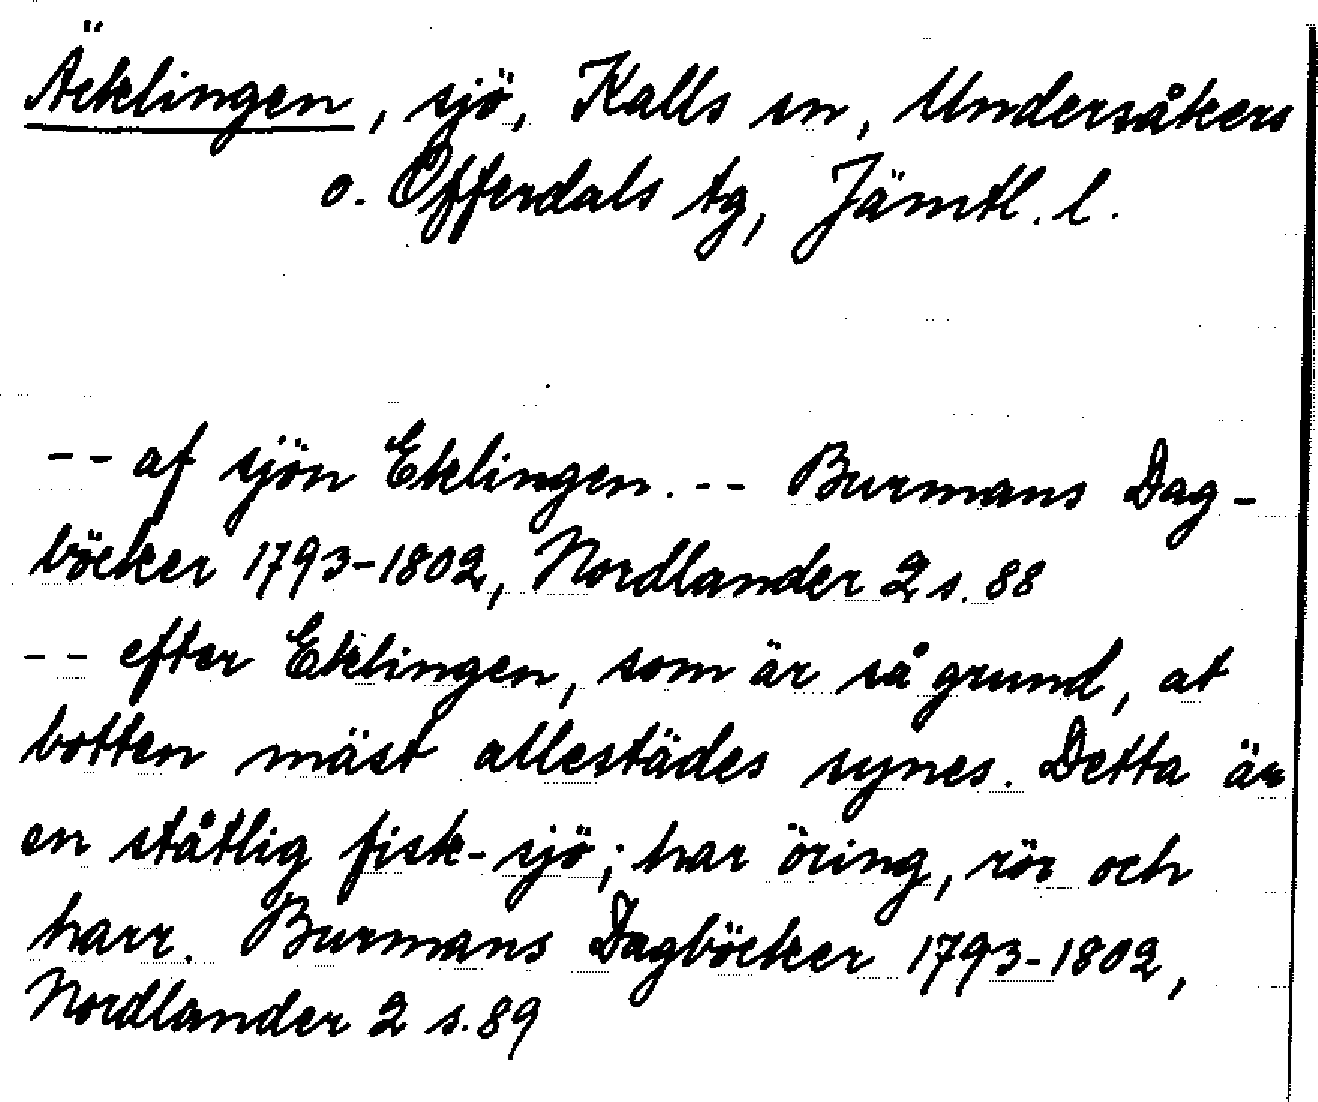 Äcklingen, sjö, Kalls sn, Undersåkers
o. Offerdals tg, Jämtl. l.
-- af sjön Eklingen. -- Burmans Dag-
böcker 1793-1802, Nordlander 2 s. 88
-- efter Eklingen, som är så grund, at
botten mäst allestädes synes. Detta är
en ståtlig fisk-sjö; har öring, rör och
harr. Burmans Dagböcker 1793-1802,
Nordlander 2 s. 89